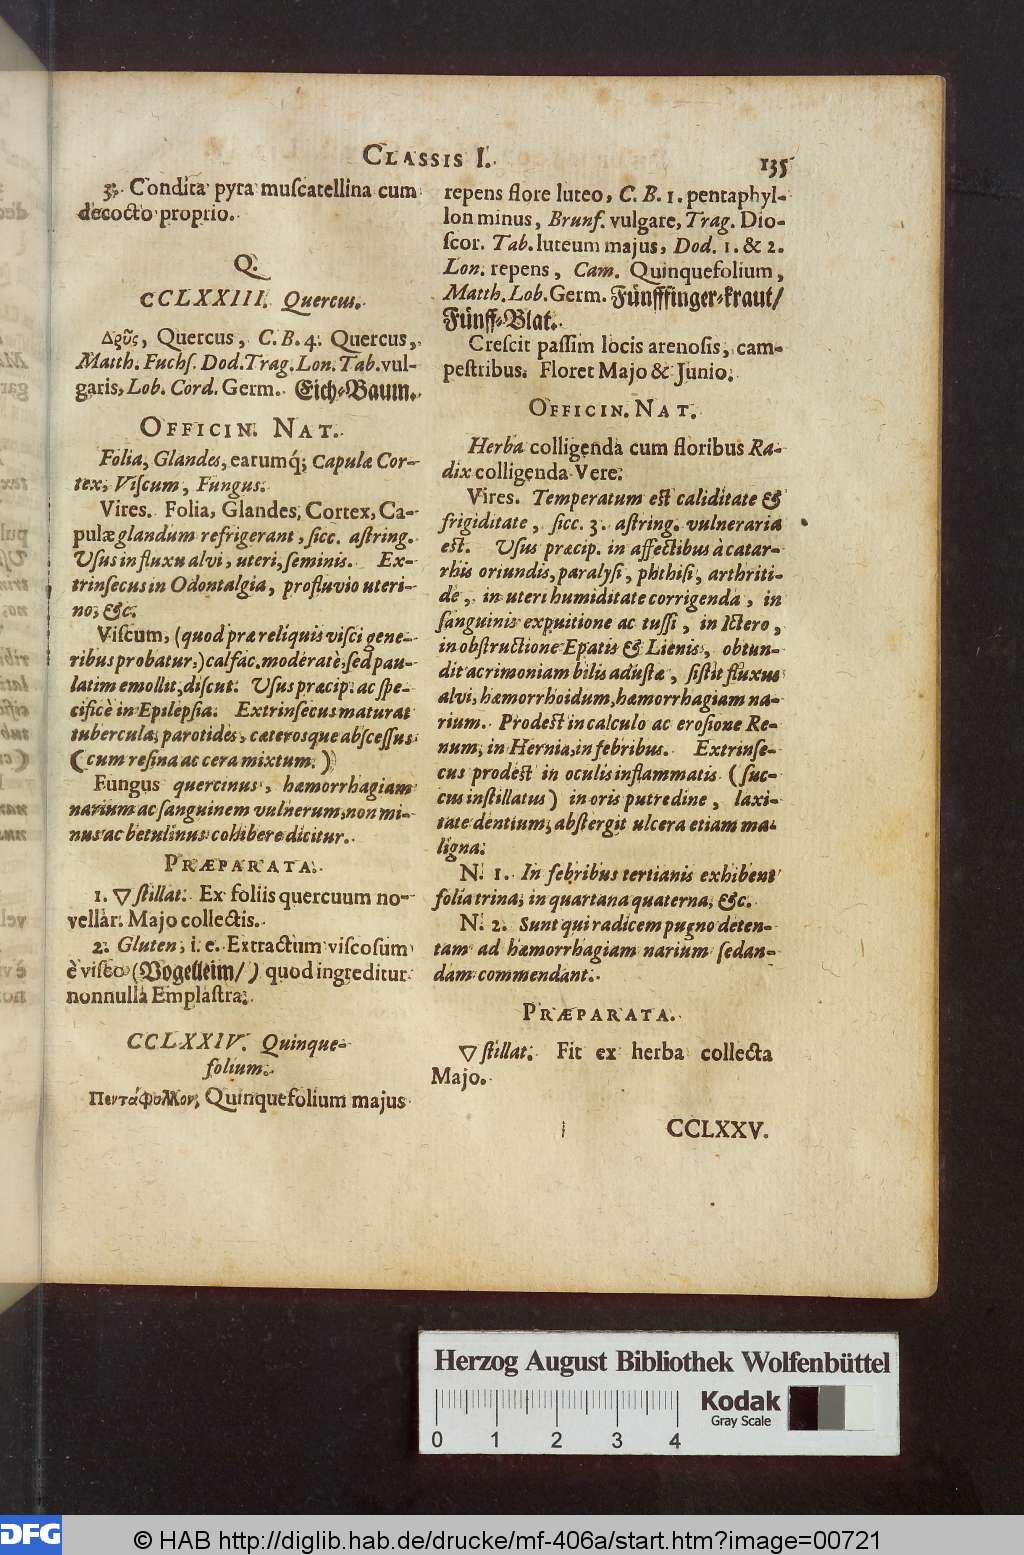 CLASSIS I.
135
3. Condita pyra muſcatellina cum
decocto proprio.
Q.
CCLXXIII. Quercus.
Δρῦς, Quercus, C. B. 4. Quercus,
Matth. Fuchſ. Dod. Trag. Lon. Tab. vul-
garis, Lob. Cord. Germ. Eich-Baum.
OFFICIN. NAT.
Folia, Glandes, earumq́; Capulæ Cor-
tex, Viſcum, Fungus.
Vires. Folia, Glandes, Cortex, Ca-
pulæ glandum refrigerant, ſicc. aſtring.
Uſus in fluxu alvi, uteri, ſeminis. Ex-
trinſecus in Odontalgia, profluvio uteri-
no, &c.
Viſcum, (quod præ reliquis viſci gene-
ribus probatur,) calfac. moderatè, ſed pau-
latim emollit, diſcut. Uſus præcip. ac ſpe-
cificè in Epilepſia. Extrinſecus maturat
tubercula, parotides, cæterosque abſceſſus
(cum reſina ac cera mixtum.)
Fungus quercinus, hæmorrhagiam
narium ac ſanguinem vulnerum, non mi-
nus ac betulinus cohibere dicitur.
PRÆPARATA.
1. ▽ ſtillat. Ex foliis quercuum no-
vellar. Majo collectis.
2. Gluten, i. e. Extractum viſcoſum
è viſco (Vogelleim/) quod ingreditur
nonnulla Emplaſtra.
CCLXXIV. Quinque-
folium.
Πεντάφυλλον, Quinquefolium majus
repens flore luteo, C. B. 1. pentaphyl-
lon minus, Brunf. vulgare, Trag. Dio-
ſcor. Tab. luteum majus, Dod. 1. & 2.
Lon. repens, Cam. Quinquefolium,
Matth. Lob. Germ. Fünfffinger-kraut/
Fünff-Blat.
Creſcit paſſim locis arenoſis, cam-
peſtribus. Floret Majo & Junio.
OFFICIN. NAT.
Herba colligenda cum floribus Ra-
dix colligenda Vere.
Vires. Temperatum est caliditate &
frigiditate, ſicc. 3. aſtring. vulneraria
est. Uſus præcip. in affectibus à catar-
rhis oriundis, paralyſi, phthiſi, arthriti-
de, in uteri humiditate corrigenda, in
ſanguinis expuitione ac tuſſi, in Ictero,
in obſtructione Epatis & Lienis, obtun-
dit acrimoniam bilis aduſtæ, ſiſtit fluxus
alvi, hæmorrhoidum, hæmorrhagiam na-
rium. Prodest in calculo ac eroſione Re-
num, in Hernia, in febribus. Extrinſe-
cus prodest in oculis inflammatis (ſuc-
cus inſtillatus) in oris putredine, laxi-
tate dentium, abſtergit ulcera etiam ma-
ligna.
N. 1. In febribus tertianis exhibent
folia trina, in quartana quaterna, &c.
N. 2. Sunt qui radicem pugno deten-
tam ad hæmorrhagiam narium ſedan-
dam commendant.
PRÆPARATA.
▽ ſtillat. Fit ex herba collecta
Majo.
CCLXXV.
Herzog August Bibliothek Wolfenbüttel
Kodak
Gray Scale
0 1 2 3 4
DFG
© HAB http://diglib.hab.de/drucke/mf-406a/start.htm?image=00721